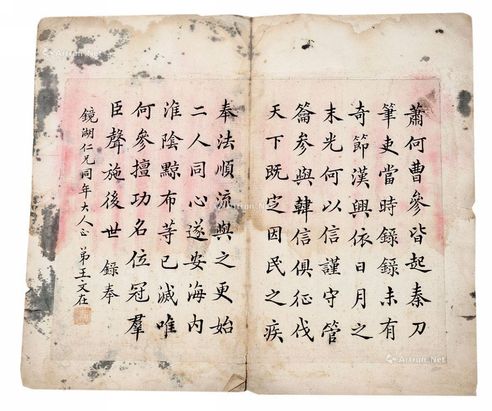 蕭何曹參皆起秦刀
筆吏當時錄錄未有
奇節漢興依日月之
末光何以信謹守管
籥參與韓信俱征伐
天下既定因民之疾
奉法順流與之更始
二人同心遂安海内
淮陰黥布等已滅唯
何參擅功名位冠羣
臣聲施後世 錄奉
鏡湖仁兄同年大人正 弟王文在
Artron.Net
Artron.Net